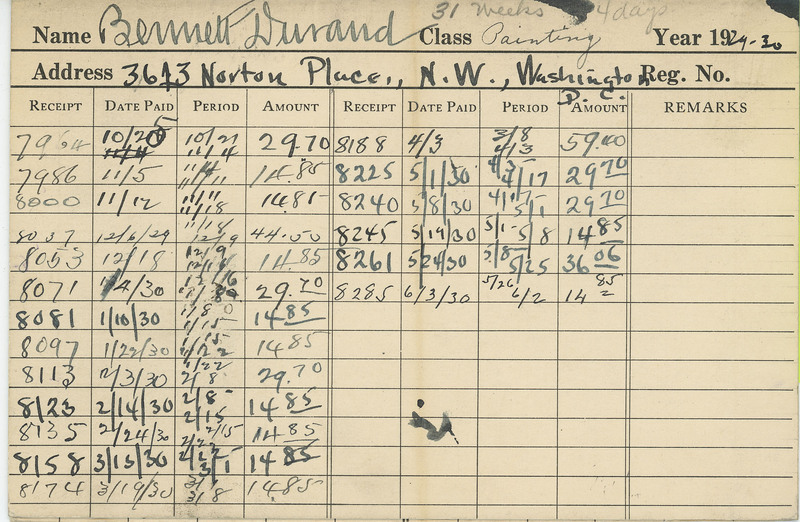 31 weeks 4 days
Name Bennett Durand Class Painting Year 1929-30
Address 3613 Norton Place., N.W., Washington Reg. No.
D. C.
RECEIPT DATE PAID PERIOD AMOUNT RECEIPT DATE PAID PERIOD AMOUNT REMARKS
7964 10/25 10/21 29.70 8188 4/3 3/8 59.40
11/4 11/4 4/3
7986 11/5 11/4 14.85 8225 5/1/30 4/3 29 70
11/11 4/17
8000 11/12 11/11 14.85 8240 5/8/30 4/17 29 70
11/18 5/1
8037 12/6/29 11/18 44.50 8245 5/19/30 5/1-5/8 14 85
12/9
8053 12/18 12/9 14.85 8261 5/24/30 5/8- 36 06
12/16 5/25
8071 1/4/30 12/16 29.70 8285 6/3/30 5/26 14 85
6/2
8081 1/10/30 1/8 14 85
1/15
8097 1/22/30 1/15 14 85
1/22
8113 2/3/30 1/22 29.70
2/8
8123 2/14/30 2/8 14 85
2/15
8135 2/24/30 2/15 14 85
2/22
8158 3/13/30 2/22 14 85
3/1
8174 3/19/30 3/1 14.85
3/8